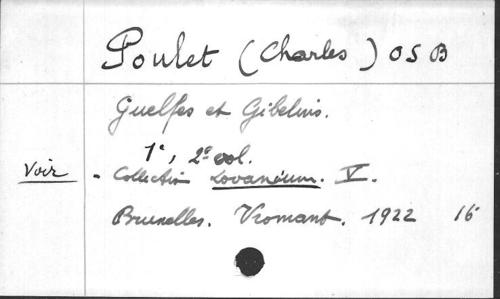 Poulet (Charles) OSB
Guelfes et Gibelins.
1°, 2° vol.
Voir - Collection Lovanium. V.
Bruxelles. Vromant. 1922 16